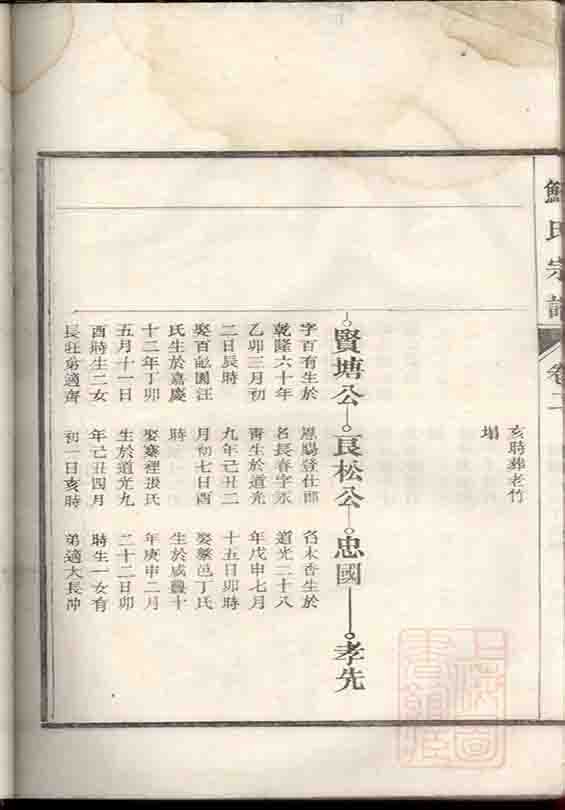 氏宗譜
卷二
亥時葬老竹
塌
賢塘公
良松公
忠國
孝先
字百有生於
乾隆六十年
乙卯三月初
二日辰時
娶百畝園汪
氏生於嘉慶
十二年丁卯
五月十一日
酉時生二女
長旺弟適齊
恩賜登仕郎
名長春字永
青生於道光
九年己丑二
月初七日酉
時
娶寨裡張氏
生於道光九
年己丑四月
初一日亥時
名木香生於
道光二十八
年戊申七月
十五日卯時
娶黎邑丁氏
生於咸豐十
年庚申二月
二十二日卯
時生一女有
弟適大長冲
上海圖
書館藏